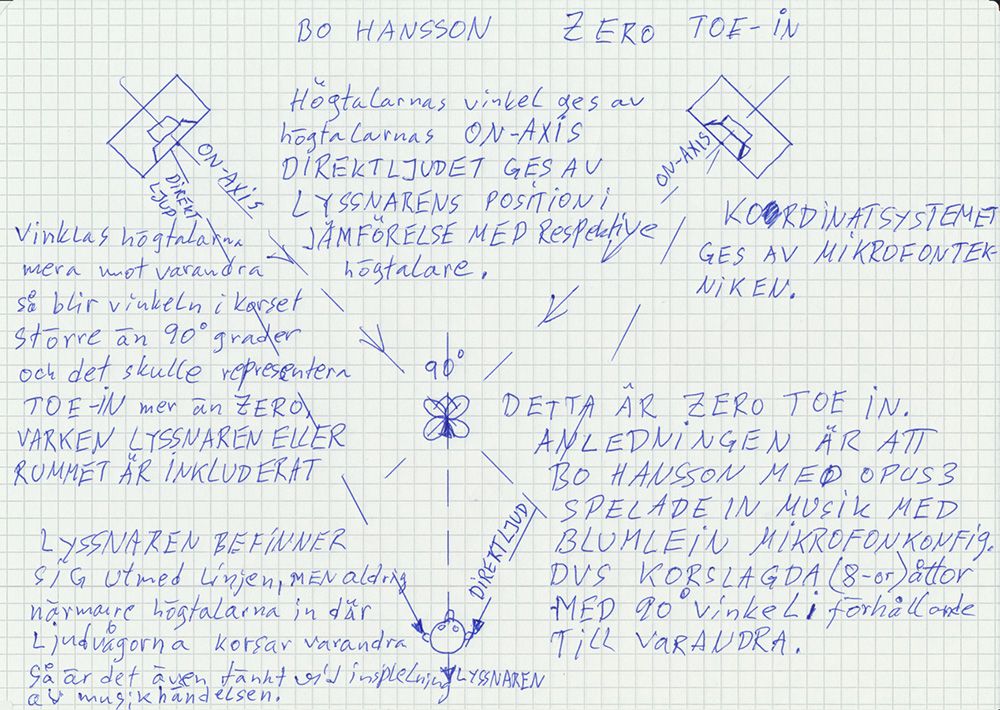 BO HANSSON ZERO TOE-IN
Högtalarnas vinkel ges av
högtalarnas ON-AXIS
DIREKTLJUDET GES AV
LYSSNARENS POSITION I
JÄMFÖRELSE MED Respektive
högtalare.
ON-AXIS
DIREKT
LJUD
ON-AXIS
KOORDINATSYSTEMET
GES AV MIKROFONTEK-
NIKEN.
Vinklas högtalarna
mera mot varandra
så blir vinkeln i korset
större än 90° grader
och det skulle representera
TOE-IN mer än ZERO,
VARKEN LYSSNAREN ELLER
RUMMET ÄR INKLUDERAT
90°
DETTA ÄR ZERO TOE IN.
ANLEDNINGEN ÄR ATT
BO HANSSON MED OPUS 3
SPELADE IN MUSIK MED
BLUMLEIN MIKROFONKONFIG.
DVS KORSLAGDA (8-or) åttor
MED 90° vinkel i förhållande
TILL VARANDRA.
LYSSNAREN BEFINNER
SIG utmed Linjen, MEN aldrig
närmare högtalarna in där
Ljudvågorna korsar varandra
Så är det även tänkt vid inspelning
av musikhändelsen.
DIREKTLJUD
LYSSNAREN